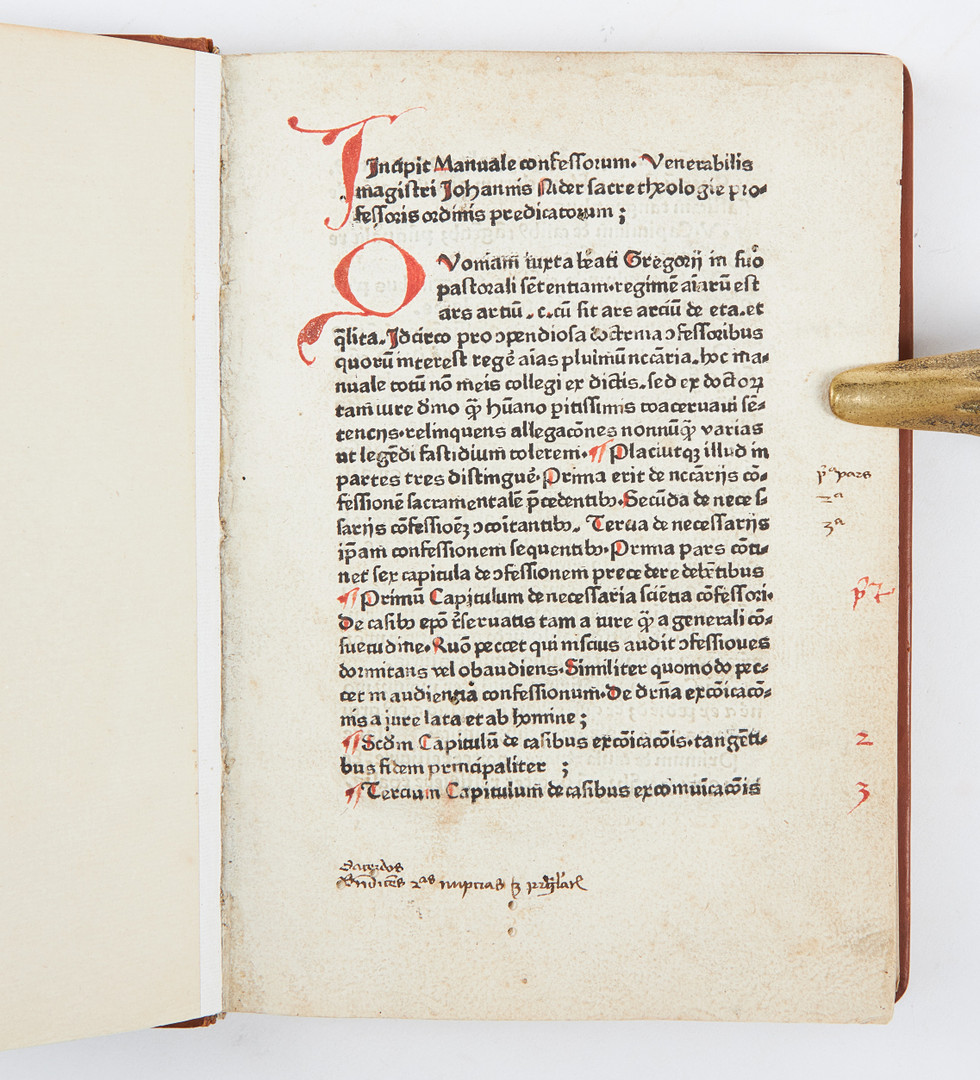 Incipit Manuale confessorum. Venerabilis
magistri Johannis Nider sacre theologie pro-
fessoris ordinis predicatorum ;
QVoniam̄ iuxta bēati Gregorij in suo
pastorali sētentiam. regimē aīarū est
ars artiū . c. cū sit ars arciū de eta. et
q̄lita. Idcirco pro ↄpendiosa doctrina ↄfessoribus
quorū interest regē aīas plurimū nccāria. hoc ma-
nuale totū nō meis collegi ex dictis. sed ex doctoꝝ
tam iure dīno qꝫ hūano ꝑitissimis coaceruaui sē-
tencijs. relinquens allegacōnes nonnūqꝫ varias
ut legēdi fastidium tolerem. ¶ Placiutqꝫ illud in
partes tres distinguē. Prima erit de nccārijs cō-
fessionē sacramentalē p̄cedentibꝫ. Secūda de necess-
sarijs cōfessioēꝫ ↄcoītantibꝫ. Tercia de necessarijs
ip̄am confessionem sequentibꝫ. Prima pars cōti-
net sex capitula de ↄfessionem precedere debētibus
¶ Primū Capitulum de necessaria sciētia cōfessori.
De casibꝫ epō r̄seruatis tam a iure qꝫ a generali cō-
suetudine. Quō peccet qui inscius audit ↄfessiones
dormitans vel obaudiens. Similiter quomodo pec-
cet in audientia confessionum. De drn̄a excōicacō-
nis a iure lata et ab homine ;
¶ Scdm Capitulū de casibus excōicacōis. tangēti-
bus fidem principaliter ;
¶ Tercium Capitulum̄ de casibus excomūicacōis
pᵃ pars
2ᵃ
3ᵃ
2
3
Sacerdos
2ᵃˢ nuptias